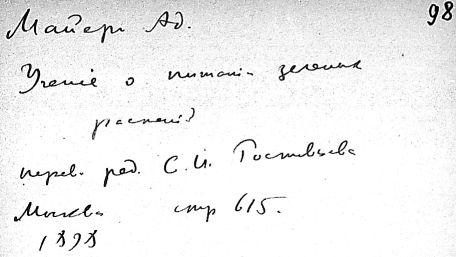 98
Майеръ Ад.
Ученіе о питаніи зеленых
растеній
перев. ред. С. И. Ростовцева
Москва стр 615.
1898